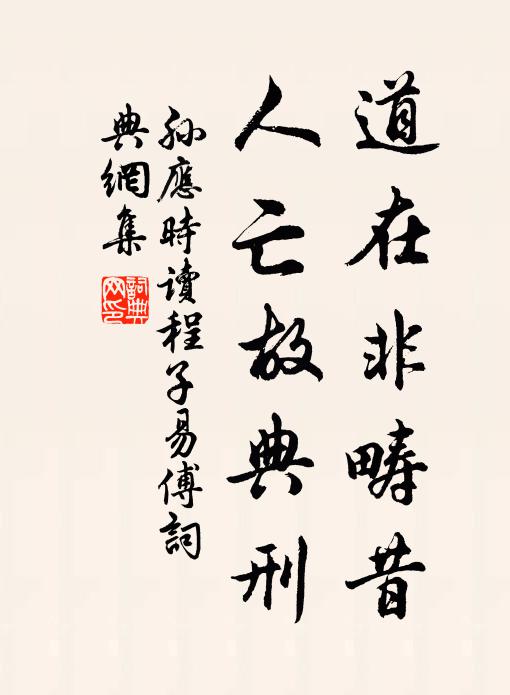 道在非疇昔
人亡故典刑
孙應時讀程子易傅詞
典網集
詞典
网印